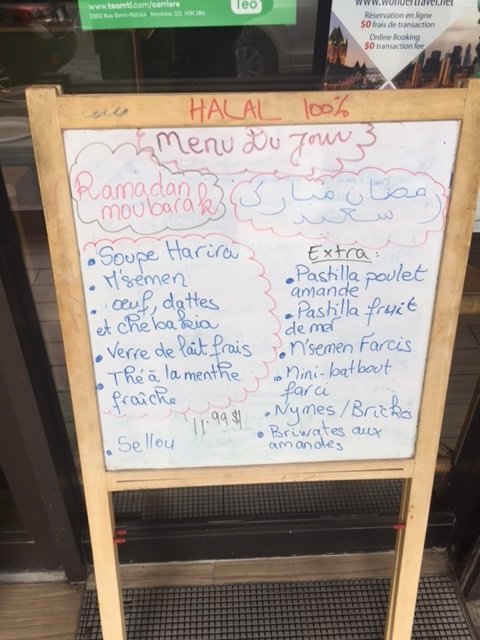 www.teomtl.com/carriere
2350 Rue Saint-Patrick, Montréal QC H3K 1B6
Teo
www.wondertravel.net
Réservation en ligne
$0 frais de transaction
Online Booking
$0 transaction fee
HALAL 100%
Menu Du Jour
Ramadan
moubarak
رمضان مبارك
سعيد
• Soupe Harira
• M'semen
• oeuf, dattes
et chebakia
• Verre de lait frais
• Thé à la menthe
fraîche
11.99$
• Sellou
Extra:
• Pastilla poulet
amande
• Pastilla fruit
de mer
• M'semen Farcis
• Mini-batbout
farci
• Nymes/Brickes
• Briwates aux
amandes